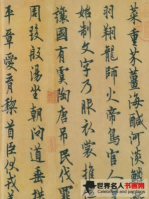 菜重芥薑海鹹河淡鱗
羽翔龍師火帝鳥官人
始制文字乃服衣裳推
讓國有虞陶唐吊民伐
周發殷湯坐朝問道垂拱
平章愛育黎首臣伏戎
世界名人书画网